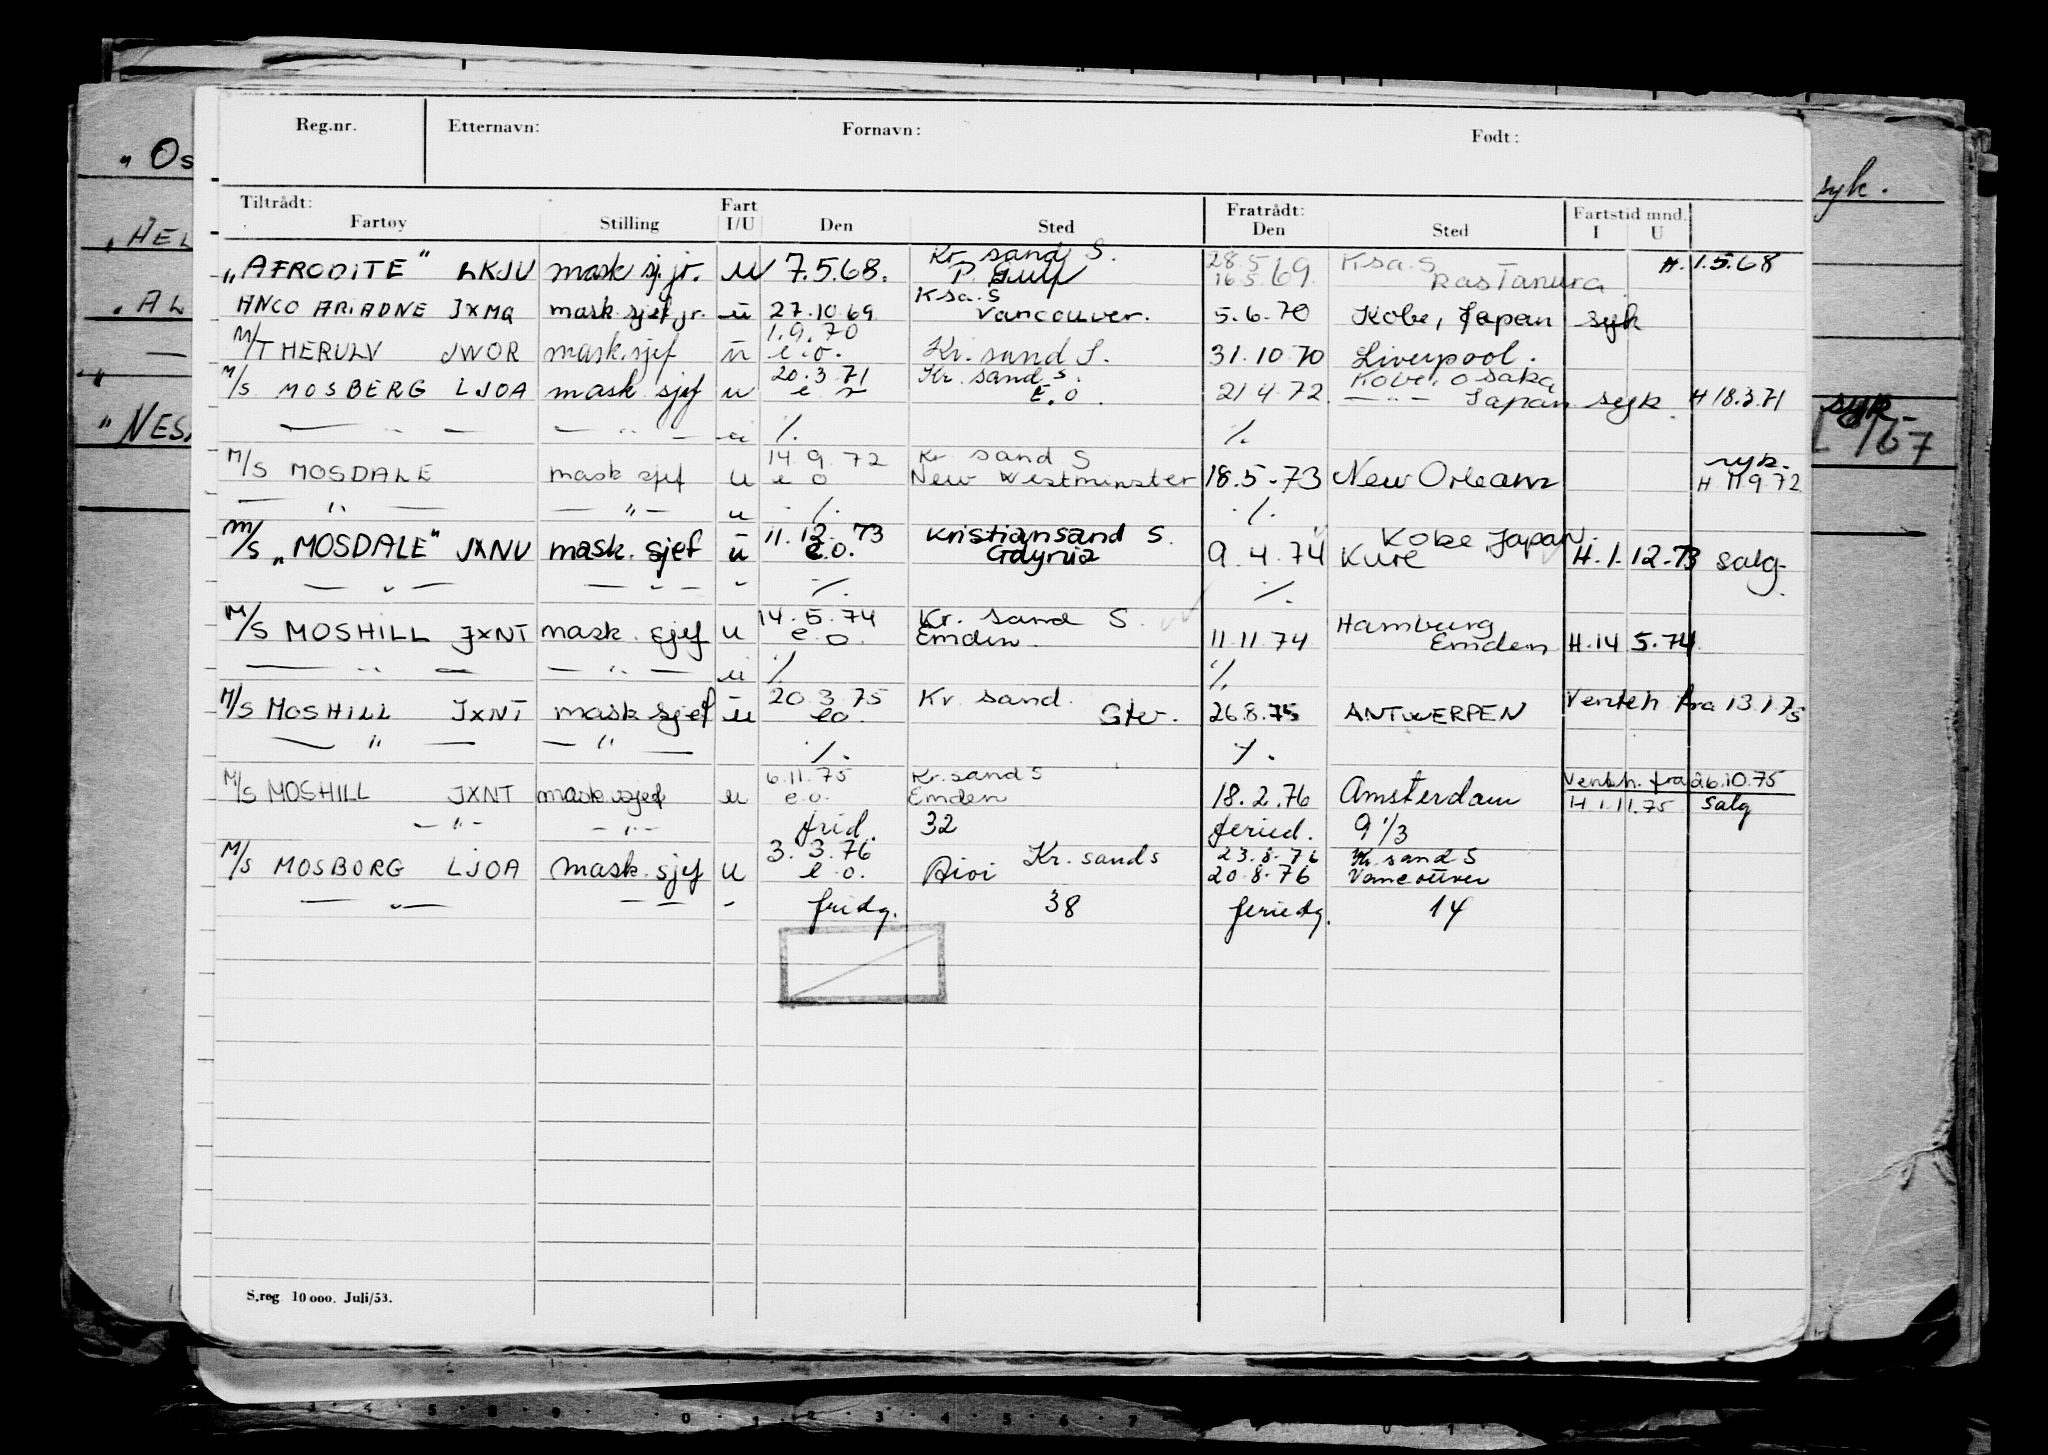 Reg.nr. Etternavn: Fornavn: Født:
Tiltrådt: Fratrådt: Fartstid mnd.
Fartøy Stilling Fart I/U Den Sted Den Sted I U
Kr. sand S. 28.5 Ksa. S
„AFRODITE" LKJV mask sj. jr. u 7.5.68. P. 16.5 69 Ras Tanura H. 1.5.68
Ksa. S
ANCO ARIADNE JXMQ mask. sjef jr. u 27.10 69 Vancouver. 5.6.70 Kobe, Japan syk
1.9.70
M/T HERULV JWOR mask. sjef u e.o. Kr. sand S. 31.10 70 Liverpool.
20.3.71 Kr. sand S. Kobe, Osaka
M/S. MOSBERG LJOA mask. sjef u E.O. 21 4 72. — " — Japan syk H 18.3.71
— " — — " — u ./. ./.
14.9.72 Kr sand S syk.
M/S MOSDALE mask sjef u e o New Westminster 18.5-73 New Orleans H 11 9 72
— " — — " — u ./. ./.
11.12.73 Kristiansand S. Kobe, Japan.
M/S „MOSDALE" JXNV mask. sjef u e.o. Gdynia 9.4.74 Kure H. 1. 12-73 salg.
— " — — " — " ./. ./.
14.5.74 Kr. sand S. Hamburg
M/S MOSHILL JXNT mask. sjef u e.o. Emden. 11.11.74 Emden H. 14 5.74
— " — — " — u ./. ./.
20.3.75 Kr. sand. Venteh fra 13.1.75
M/S MOSHILL JXNT mask sjef u eo. 26.8.75 ANTWERPEN
— " — — " — ./. ./.
6.11.75 Kr. sand S Venteh. fra 26.10.75
M/S MOSHILL JXNT mask sjef u e.o. Emden 18.2.76 Amsterdam H 1.11.75 salg
— " — — " — frid. 32 feried. 9 1/3
3.3.76 Kr. sand S 23.8.76 Kr. sand S
M/S MOSBORG LJOA mask. sjef u e.o. Aioi 20.8.76 Vancouver
— " — — — - fridg. 38 feriedg. 14
S.reg 10 000. Juli/53.
„Os
„HEL
„AL
—
"
"NES
syk.
syk
/67
3 4 5 8 9 0 1 2 3 4 5 6 7